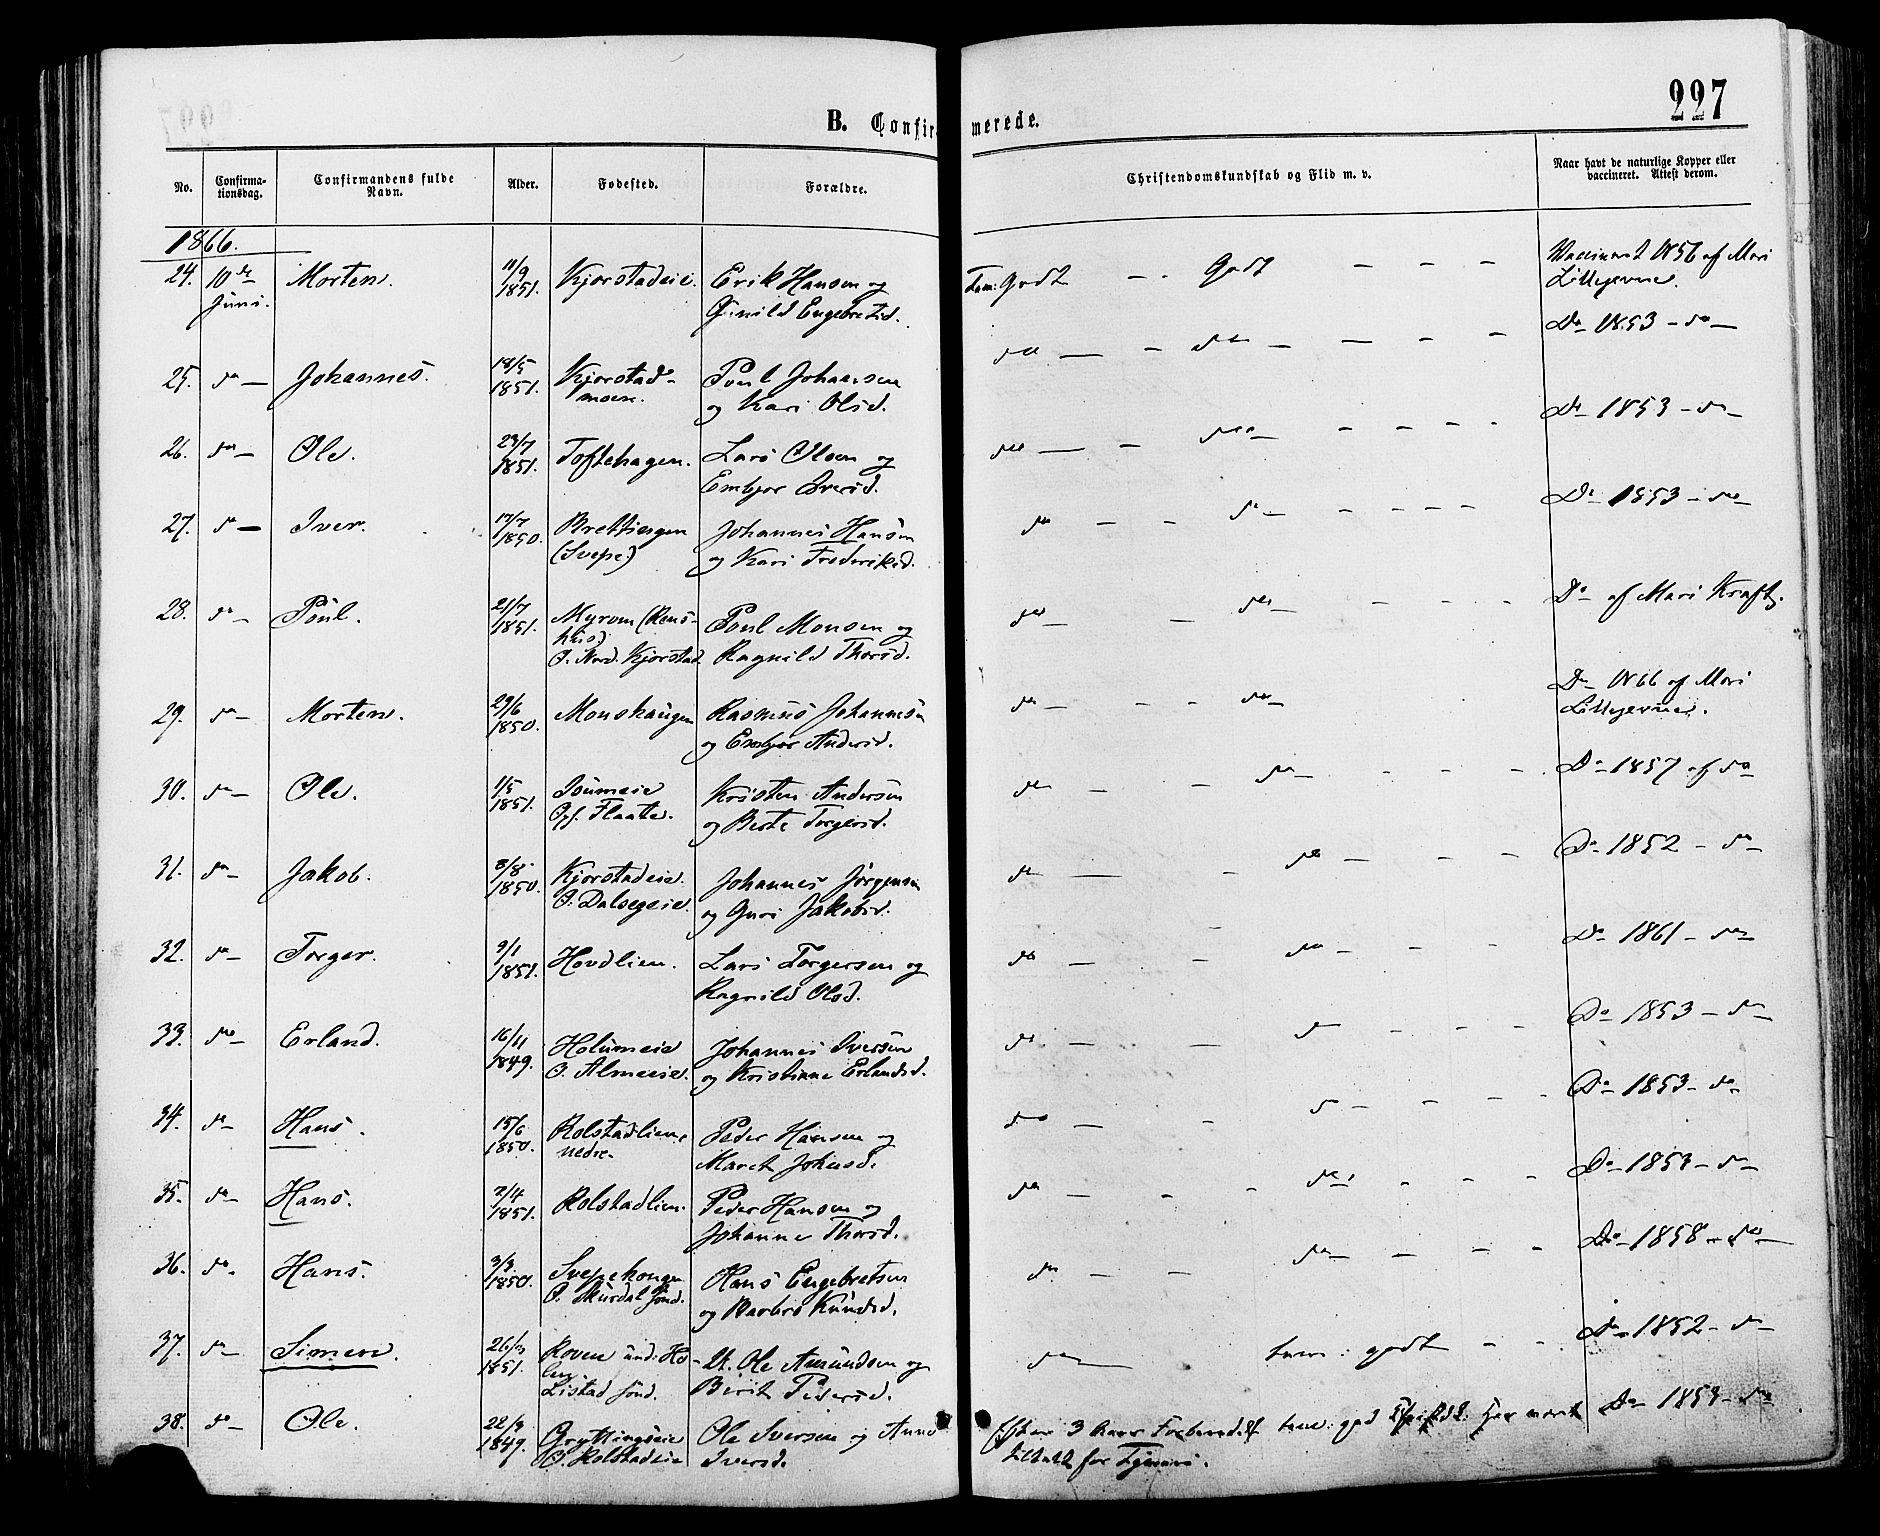 B. Confirmerede.
227
No.
Confirma-
tionsdag.
Confirmandens fulde
Navn.
Alder.
Fødested.
Forældre.
Christendomskundskab og Flid m. v.
Naar havt de naturlige Kopper eller
vaccineret. Attest derom.
1866.
24. 10de Juni. Morten. 11/9 1851. Kjorstadeie. Erik Hansen og
Gunild Engebretsd.
Tem: Godt — - Godt — — —
Vaccineret 1856 af Mari
Lillegevne.
25. do — Johannes. 18/5 1851. Kjorstad-
moen. Poul Johansen
og Kari Olsd.
do — — do — — — —
Do 1853 — do —
26. do — Ole. 23/7 1851. Toftehagen. Lars Olsen og
Embjør Iversd.
do — — do — — — —
Do 1853 — do —
27. do — Iver. 17/7 1850. Brettingen
(Svepe) Johannes Hansen
og Kari Frederiksd.
do — — do — — — —
Do 1853 — do
28. do — Poul. 21/7 1851. Myrom (Rens-
hus)
O. Nord. Kjorstad Poul Monsen og
Ragnild Thorsd.
do — — do — — —
Do af Mari Kraft.
29. do — Morten. 29/6 1850. Monshaugen Rasmus Johannesen
og Embjør Andersd.
do — — — do —
Do 1866 af Mari
Lillegevne.
30. do — Ole. 1/5 1851. Isumeie
Opf. Flaate. Kristen Andersen
og Berte Torgersd.
do — — do — — —
Do 1857 af do
31. do — Jakob. 3/8 1850. Kjorstadeie.
O. Dalsegeie. Johannes Jørgensen
og Guri Jakobsd.
do — — do — — —
Do 1852 — do —
32. do — Torger. 9/1 1851. Hovdlien. Lars Torgersen og
Ragnild Olsd.
do — — do — — —
Do 1861 — do
33. do — Erland. 16/11 1849. Holumeie
O. Almeeie. Johannes Iversen
og Kristianne Erlandsd.
do. — — do — — —
Do 1853 — do
34. do — Hans. 15/6 1850. Rolstadlien,
nedre. Peder Hansen og
Marit Johnsd.
do — — do — — —
Do 1853 — do
35. do — Hans. 2/4 1851. Rolstadlien. Peder Hansen og
Johanne Thorsd.
do — — — do, — — —
Do 1853 — do
36. do. Hans. 3/3 1850. Svepehougen
O. Murdal sønd. Hans Engebretsen
og Barbro Knudsd.
do — — do — — —
Do 1858 — do —
37. do — Simen. 26/3 1851. Roven und: Ho-
len
Listad sønd. U. Ole Amundsen og
Berit Pedersd.
do — tem: godt — —
Do 1852 — do —
38. do — Ole. 22/3 1849. Gryttingseie
O. Rolstadeie Ole Iversen og Anne
Iversd.
Efter 3 Aars Forbered. tem: god Har været
for
Do 1853 — do